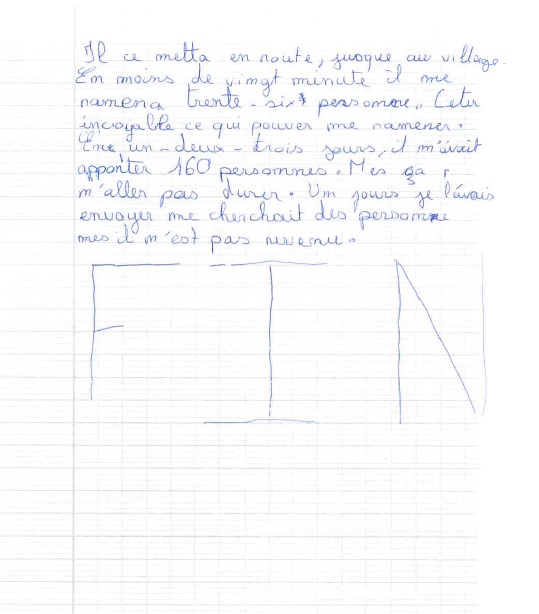 Il ce metta en route, jusque au village.
En moins de vingt minute il me
ramena trente-six personne. Ceter
incroyable ce qui pouver me ramener.
Ene un-deux-trois jours, il m'avait
apporter 160 personnes. Mes ça
m'aller pas durer. Um jours je l'avais
envoyer me cherchait des personne
mes il m'est pas revenu.
FIN